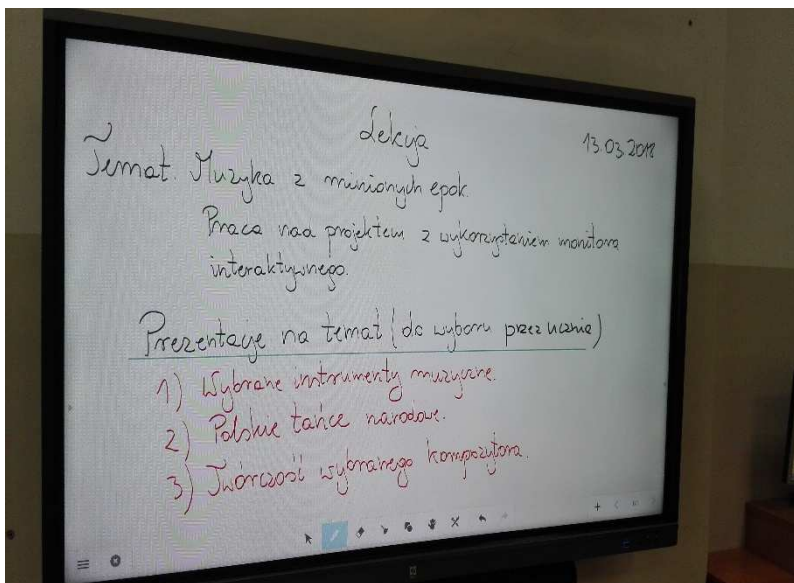 Lekcja
13.03.2018
Temat. Muzyka z minionych epok.
Praca nad projektem z wykorzystaniem monitora
interaktywnego.
Prezentacje na temat (do wyboru przez ucznia)
1) Wybrane instrumenty muzyczne.
2) Polskie tańce narodowe.
3) Twórczość wybranego kompozytora.